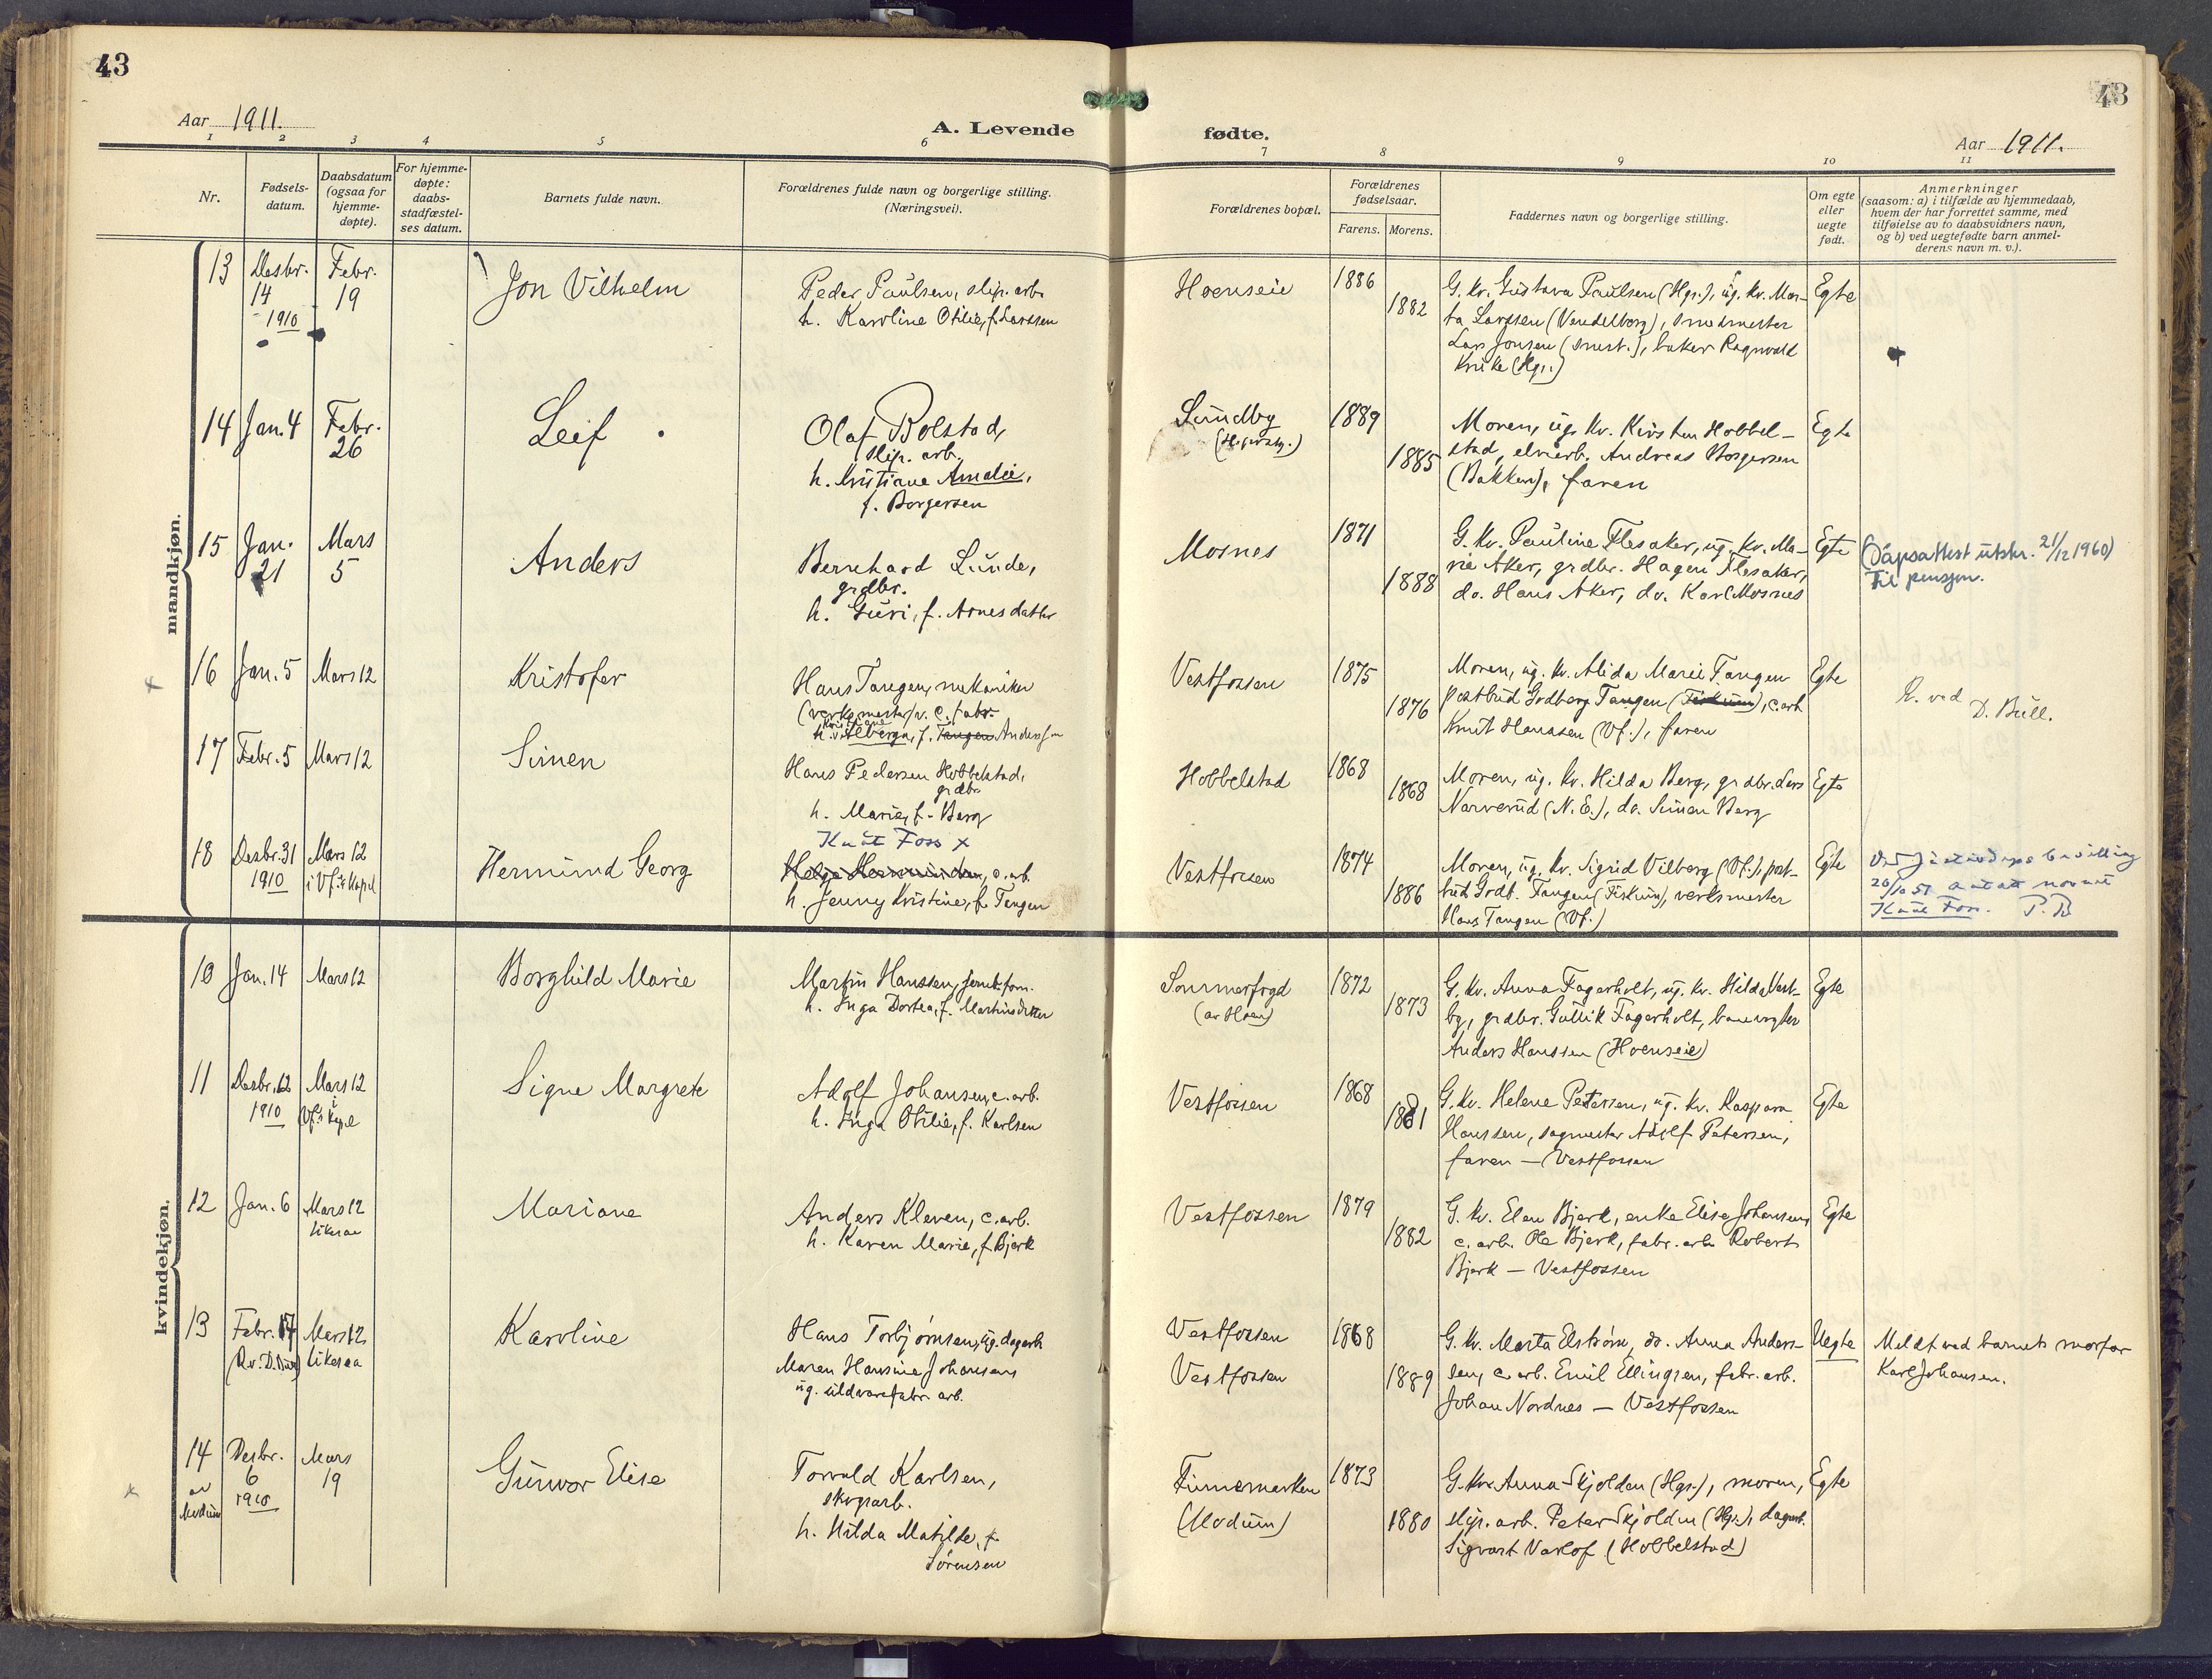 43
43
Aar 1911.
A. Levende fødte.
Aar 1911.
1 2 3 4 5 6 7 8 9 10 11
Nr.
Fødsels-
datum.
Daabsdatum
(ogsaa for
hjemme-
døpte).
For hjemme-
døpte:
daabs-
stadfæstel-
ses datum.
Barnets fulde navn.
Forældrenes fulde navn og borgerlige stilling.
(Næringsvei).
Forældrenes bopæl.
Forældrenes
fødselsaar.
Farens. Morens.
Faddernes navn og borgerlige stilling.
Om egte
eller
uegte
født.
Anmerkninger
(saasom: a) i tilfælde av hjemmedaab,
hvem der har forrettet samme, med
tilføielse av to daabsvidners navn,
og b) ved uegtefødte barn anmel-
derens navn m. v.).
mandkjøn.
13
Desbr.
14
1910
Febr.
19
Jon Vilhelm
Peder Paulsen, slip. arb.
h. Karoline Otilie, f. Larssen
Hoenseie
1886
1882
G. kv. Gustava Paulsen (Hgs.), ug. kv. Mar-
ta Larssen (Vendelborg), smedmester
Lars Jonsen (smst.), baker Ragnvald
Krike (Hgs.)
Egte
14
Jan. 4
Febr.
26
Leif
Olaf Bolstad,
slip. arb.
h. Kristiane Amalie,
f. Borgersen
Lundby
1889
1885
Moren, ug. kv. Kirsten Hobbel-
stad, elvearb. Andreas Borgersen
(Bakken), faren
Egte
15
Jan.
21
Mars
5
Anders
Bernhard Lunde,
grdbr.
h. Guri, f. Arnesdatter
Mosnes
1871
1888
G. kv. Pauline Flesaker, ug. kv. Ma-
rie Aker, grdbr. Hagen Flesaker,
do. Hans Aker, do. Karl Mosnes
Egte
(Dåpsattest utskr. 21/12 1960)
til pensjon.
16
Jan. 5
Mars 12
Kristofer
Hans Tangen, mekaniker
(verksmester) v. c. fabr.
h. Kristiane Vilberga, f. Tangen Andersen
Vestfossen
1875
1876
Moren, ug. kv. Alida Marie Tangen
postbud Godberg Tangen (Fiskum), c. arb.
Knut Hanssen (Vf.), faren
Egte
R. ved D. Bull.
17
Febr. 5
Mars 12
Simen
Hans Pedersen Hobbelstad,
grdbr.
h. Marie, f. Berg
Hobbelstad
1868
1868
Moren, ug. kv. Hilda Berg, grdbr. Lars
Narverud (N. E.), do. Simen Berg
Egte
18
Desbr. 31
1910
Mars 12
i Vf.s kapel
Hermund Georg
Knut Foss x
Helge Hermundsen, c. arb.
h. Jenny Kristine, f. Tangen
Vestfossen
1874
1886
Moren, ug. kv. Sigrid Vilberg (Vf.), post-
bud Godb. Tangen (Fiskum), verksmester
Hans Tangen (Vf.)
Egte
Ved Justisdeps bevilling
20/10 51 antatt navnet
Knut Foss. P. B
kvindekjøn.
10
Jan. 14
Mars 12
Borghild Marie
Martin Hanssen, jernb.form.
h. Inga Dortea, f. Martinsdatter
Sommerfryd
(av Hoen)
1872
1873
G. kv. Anna Fagerholt, ug. kv. Hilda Vest-
by, grdbr. Gullik Fagerholt, banevogter
Anders Hanssen (Hoenseie)
Egte
11
Desbr. 12
1910
Mars 12
i
Vf.s kapel
Signe Margrete
Adolf Johansen, c. arb.
h. Inga Otilie, f. Karlsen
Vestfossen
1868
1881
G. kv. Helene Petersen, ug. kv. Kaspara
Hanssen, sagmester Adolf Petersen,
faren — Vestfossen
Egte
12
Jan. 6
Mars 12
likesaa
Mariane
Anders Kleven, c. arb.
h. Karen Marie, f. Bjerk
Vestfossen
1879
1882
G. kv. Elen Bjerk, enke Elise Johansen,
c. arb. Ole Bjerk, fabr. arb. Robert
Bjerk — Vestfossen
Egte
13
Febr. 17
Mars 12
likesaa
Karoline
Hans Torbjørnsen, ug. dagarb.
Maren Hansine Johansen
ug. uldvarefabr. arb.
Vestfossen
Vestfossen
1868
1889
G. kv. Marta Elstrøm, do. Anna Anders-
sen, c. arb. Emil Ellingsen, fabr. arb.
Johan Nordnes — Vestfossen
Uegte
Meldt ved barnets morfar
Karl Johansen.
14
av
Modum
Desbr.
6
1910
Mars
19
Gunvor Elise
Torvald Karlsen,
skogsarb.
h. Hilda Matilde, f.
Sørensen
Finnemarken
(Modum)
1873
1880
G. kv. Anna Skjolden (Hgs.), moren,
slip. arb. Peter Skjolden (Hgs.), dagarb.
Sigvart Varlof (Hobbelstad)
Egte